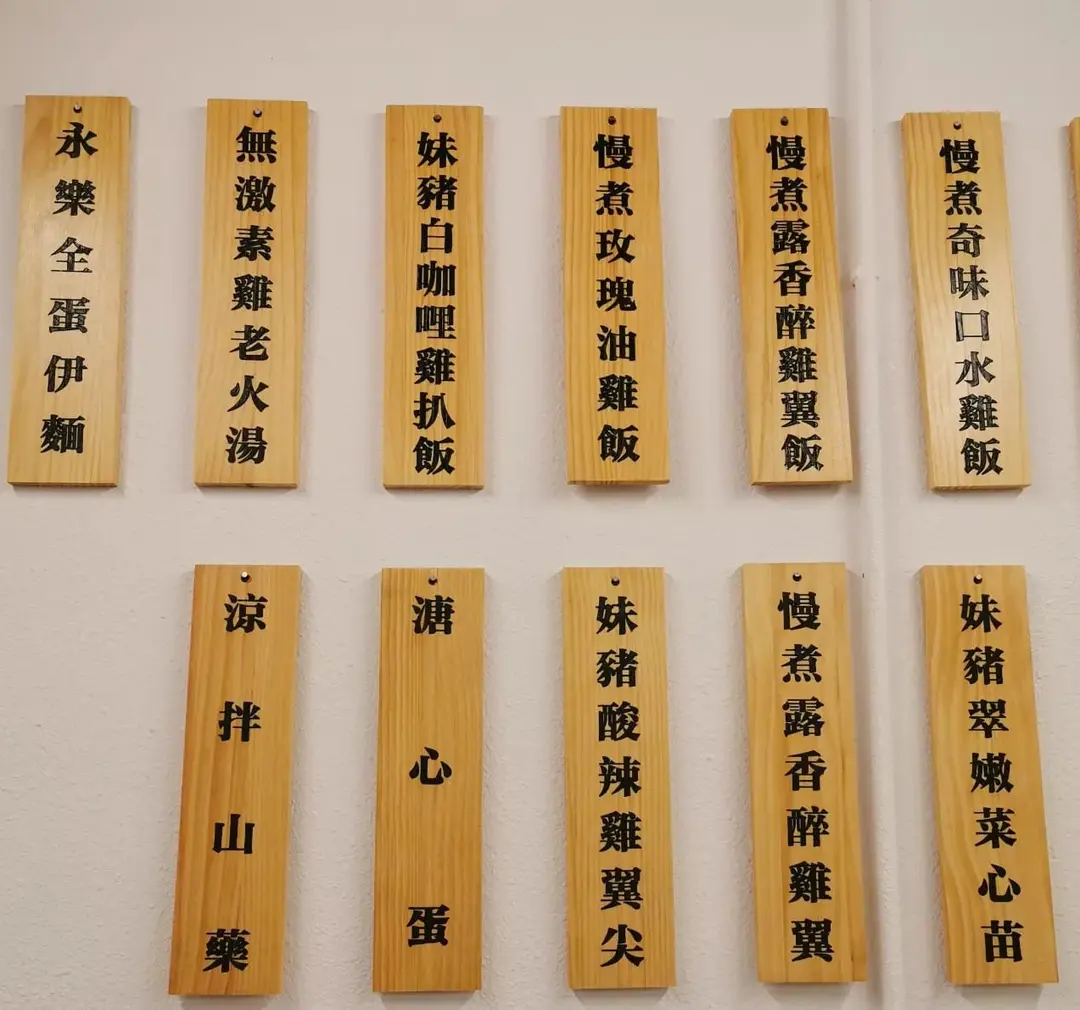 慢煮奇味口水雞飯
慢煮露香醉雞翼飯
慢煮玫瑰油雞飯
妹豬白咖哩雞扒飯
無激素雞老火湯
永樂全蛋伊麵
妹豬翠嫩菜心苗
慢煮露香醉雞翼
妹豬酸辣雞翼尖
溏心蛋
涼拌山藥